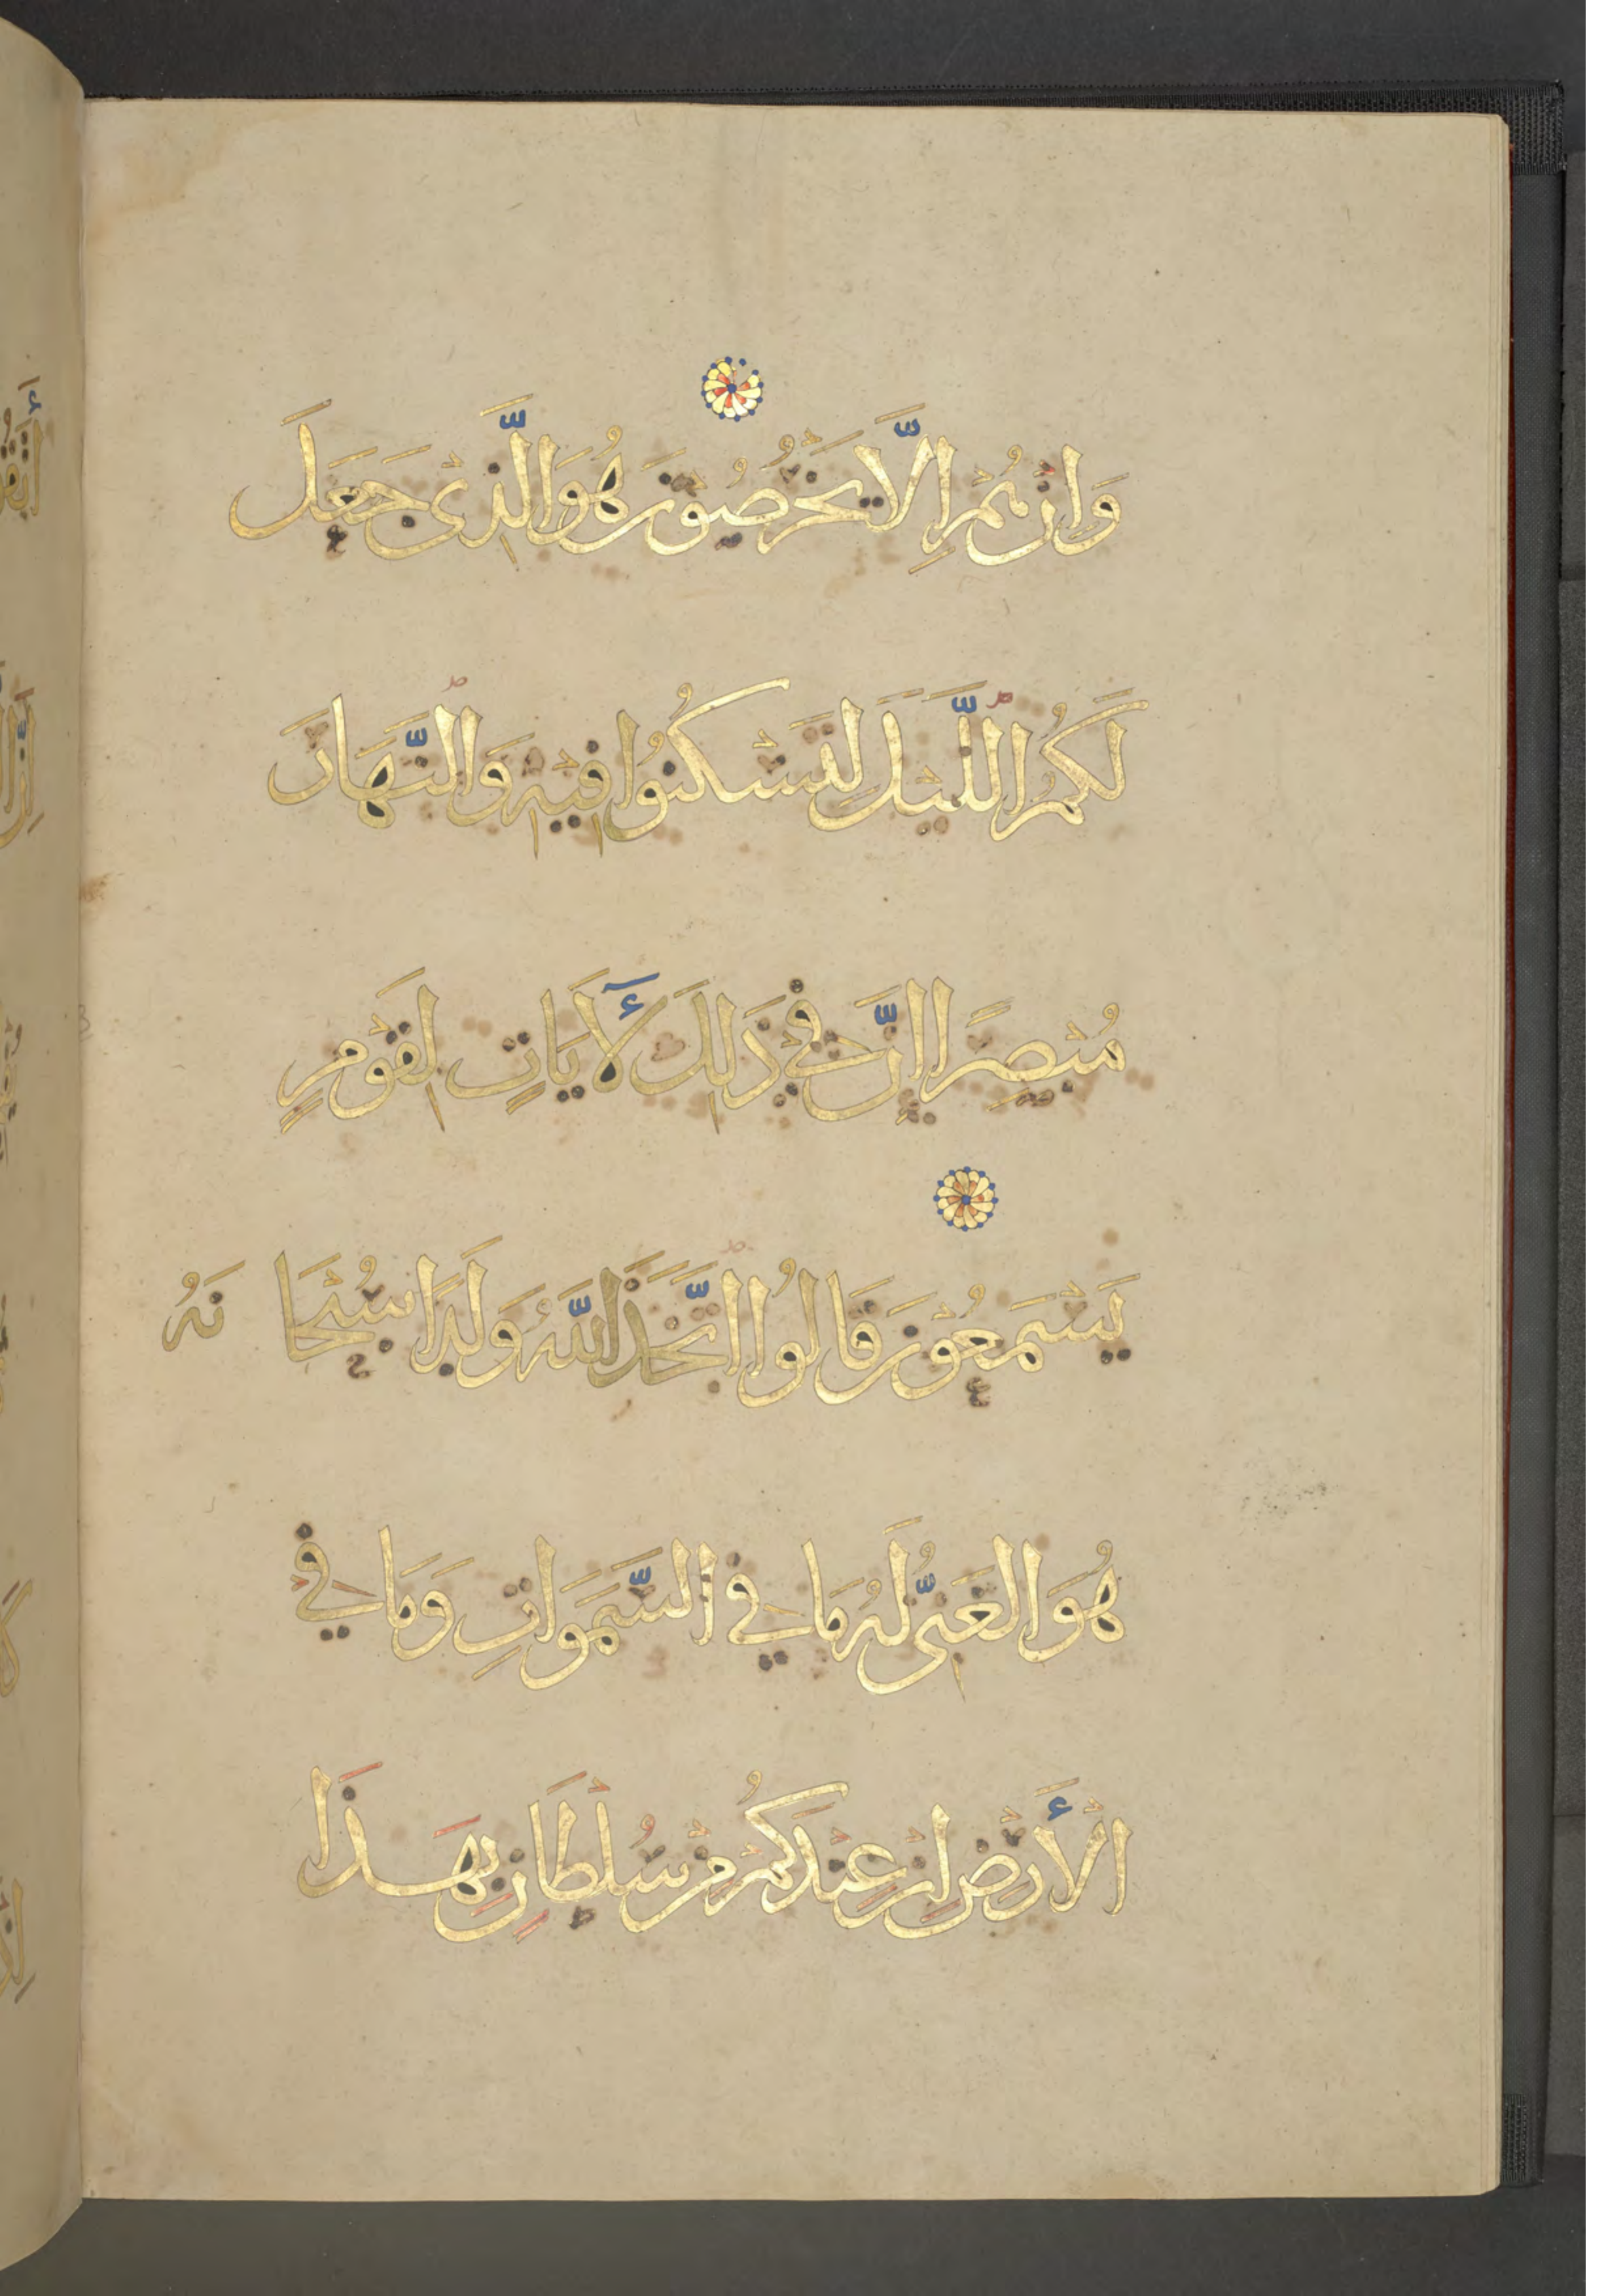 وَاِنْ هُمْ اِلَّا يَخْرُصُوْنَ هُوَ الَّذِىْ جَعَلَ
لَكُمُ اللَّيْلَ لِتَسْكُنُوا فِيْهِ وَالنَّهَارَ
مُبْصِرًا اِنَّ فِيْ ذَلِكَ لَأٓيَاتٍ لِقَوْمٍ
يَسْمَعُوْنَ قَالُوا اتَّخَذَ اللَّهُ وَلَدًا سُبْحَا نَهُ
هُوَ الغَنِىُّ لَهُ مَا فِي السَّمَوَاتِ وَمَا فِي
الْأَرْضِ اِنْ عِنْدَكُمْ مِنْ سُلْطَانٍ بِهَذَا